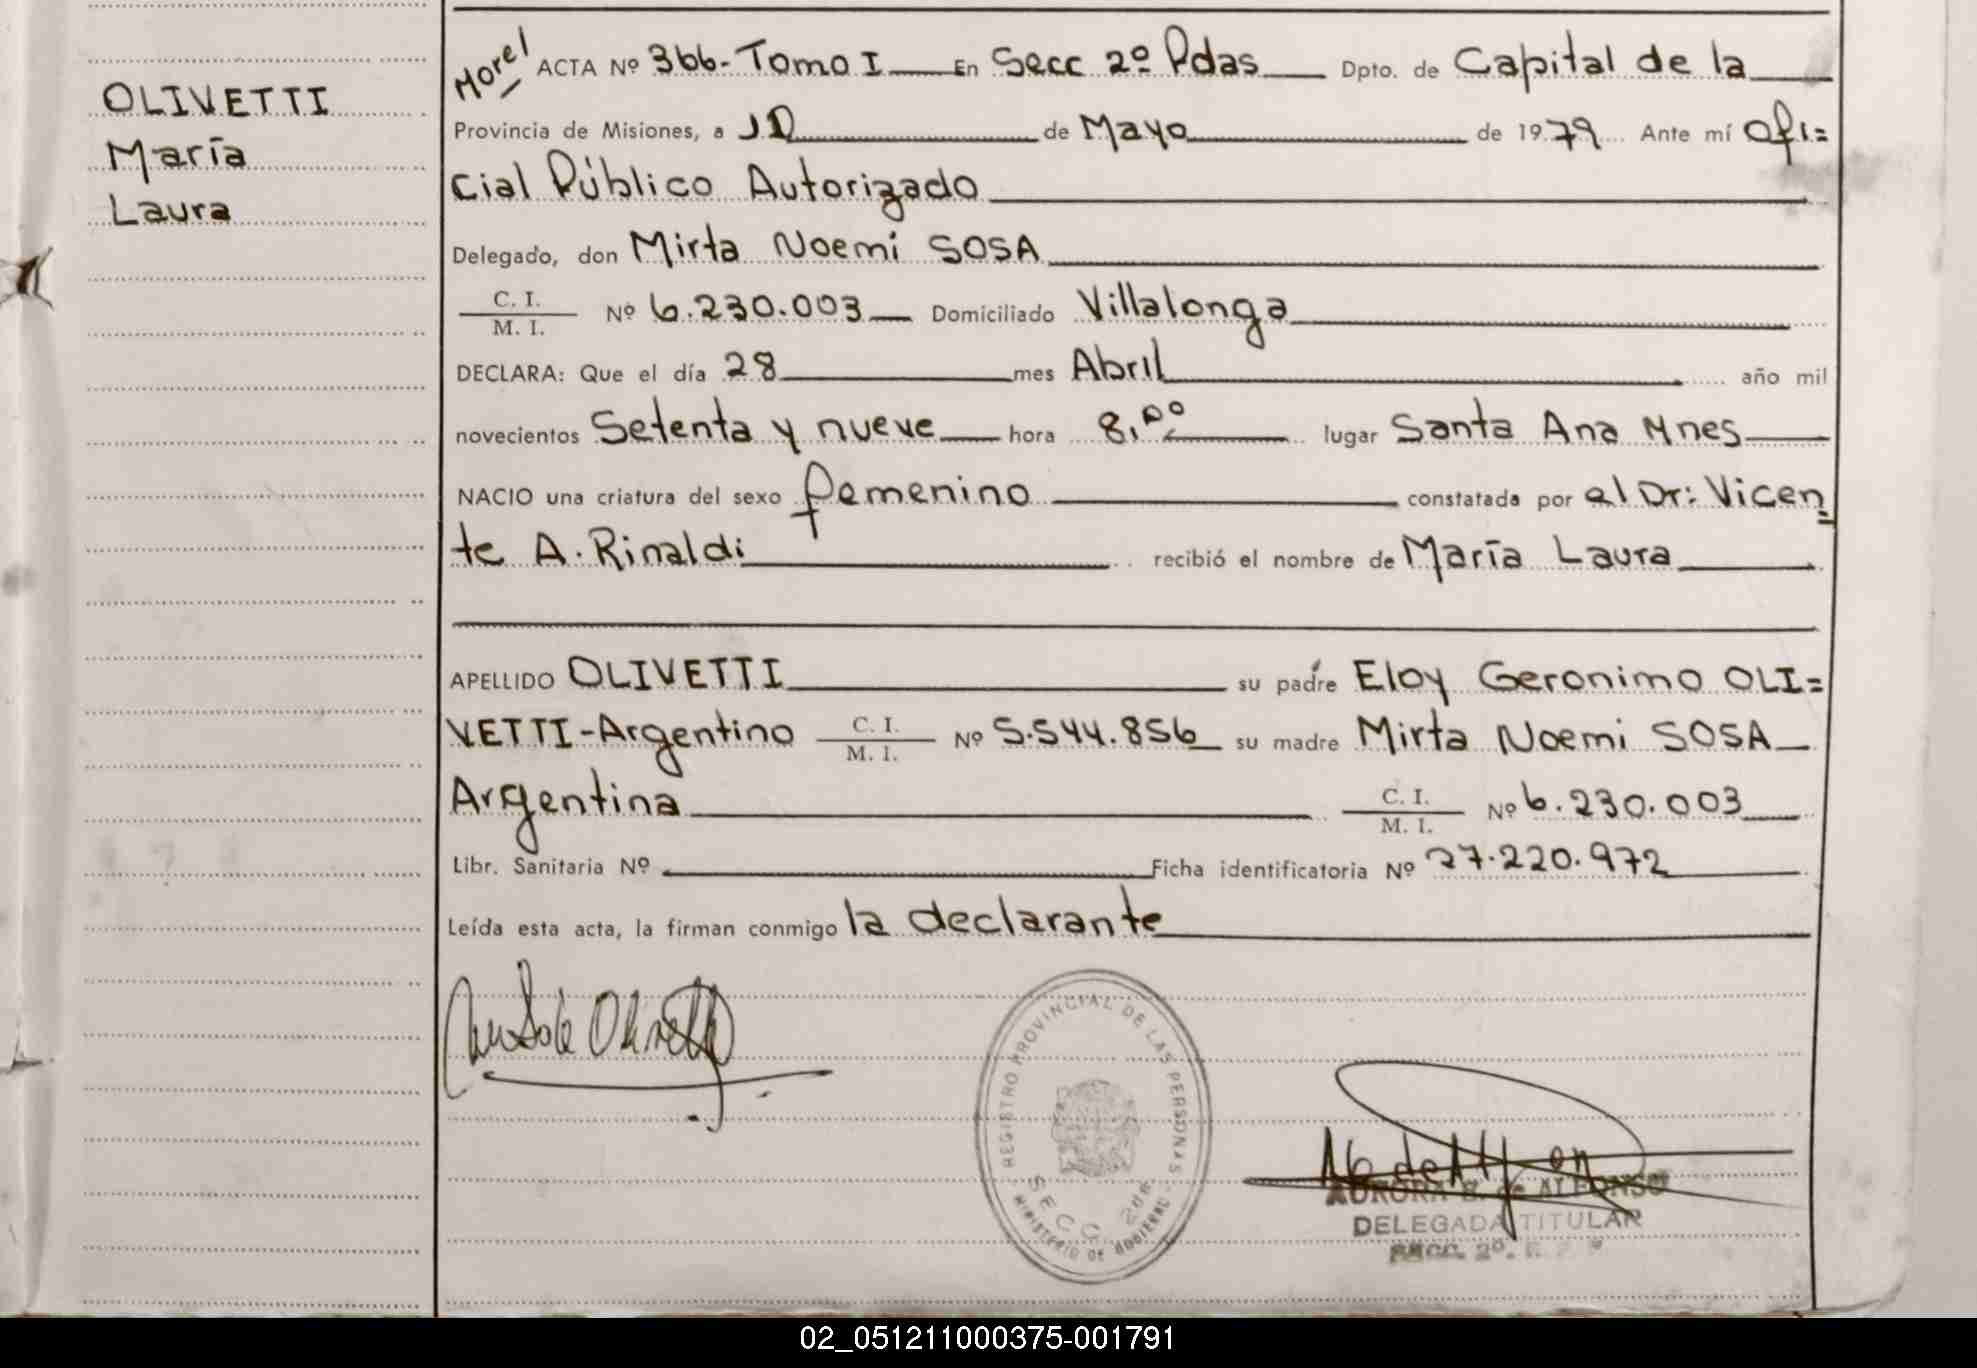 OLIVETTI
María
Laura
Morel
ACTA Nº 366-Tomo I En Secc 2º Pdas Dpto. de Capital de la
Provincia de Misiones, a 10 de Mayo de 1979 Ante mí Ofi=
cial Público Autorizado
Delegado, don Mirta Noemi SOSA
C. I.
M. I. Nº 6.230.003 Domiciliado Villalonga
DECLARA: Que el día 28 mes Abril año mil
novecientos Setenta y nueve hora 8,00 lugar Santa Ana Mnes
NACIO una criatura del sexo femenino constatada por el Dr: Vicen=
te A. Rinaldi recibió el nombre de María Laura
APELLIDO OLIVETTI su padre Eloy Geronimo OLI=
VETTI-Argentino C. I. M. I. Nº 5.544.856 su madre Mirta Noemi SOSA
Argentina C. I. M. I. Nº 6.230.003
Libr. Sanitaria Nº Ficha identificatoria Nº 27.220.972
Leída esta acta, la firman conmigo la declarante
REGISTRO PROVINCIAL DE LAS PERSONAS
SECC. 2da
MINISTERIO DE GOBIERNO
AURORA S. de ALFONSO
DELEGADA TITULAR
SECC. 2º.
02_051211000375-001791